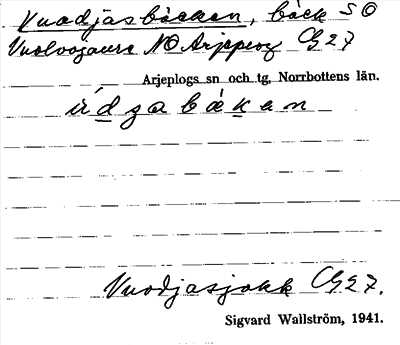 Vuodjasbäcken, bäck SO
Vuolvojaure NO Arjeplog Cg 27
Arjeplogs sn och tg, Norrbottens län.
Vuodjasjokk Cg 27.
Sigvard Wallström, 1941.